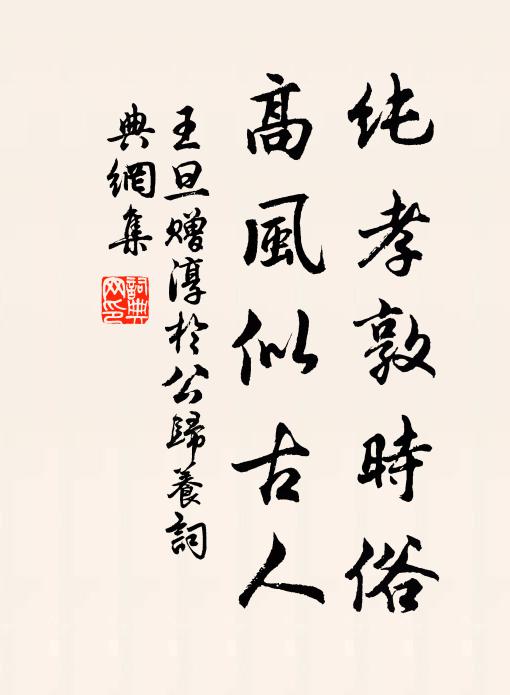 纯孝敦時俗
高風似古人
王旦贈淳於公歸養詞
典網集
詞典网印